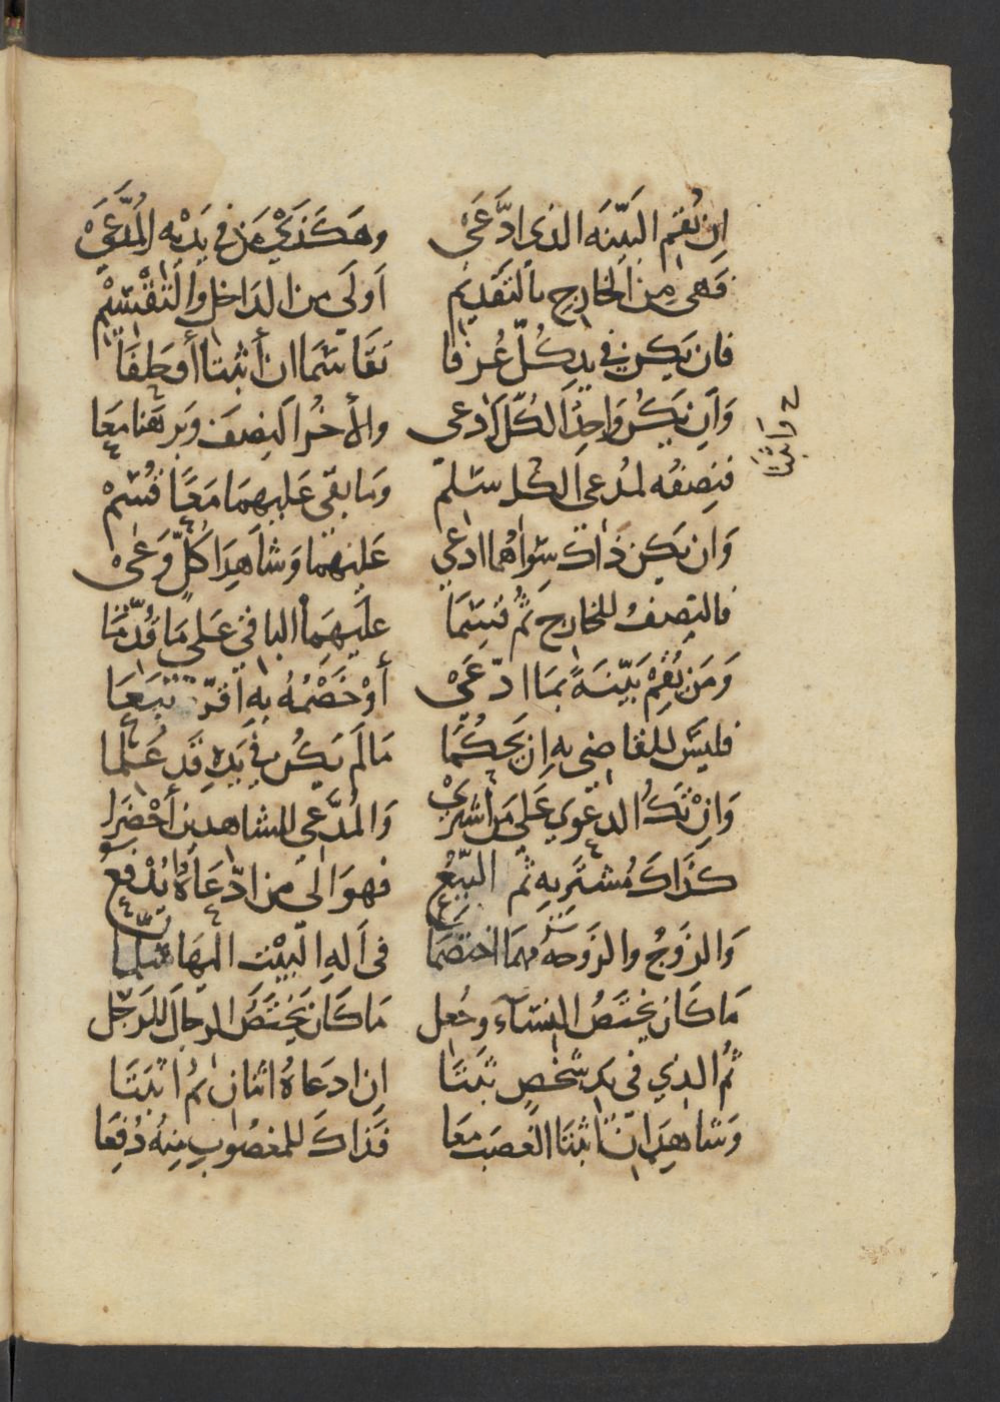 ان يُقم البَيّنَه الذي ادَّعَى وهَكَذَى مَن في يَدَيْه المُدَّعَى
فَهى مِن الخارج بالتَقديم اَولَى من الداخل والتقْسِيْم
فان يَكن في يدِ كُلّ عُرفَا تَقَاسَمَا ان أثبتا أو حَلَفَا
وَان يَكُن وَاحِدُ الكُلَّ ادعى والأخَرُ النِصفَ وَبَرهَنا معَا
فنِصفُه لمُدعى الكل سَلم وما بقى عَليهمَا مَعًا قُسِمْ
وَان يَكن ذَاك سِوَاهُما ادعي عَليهمَا وَشَاهِدَا كُلٍّ وَعَى
فالنِصفُ للخارج ثُم قسِمَا عليهِمَا الباقي عَلى مَا قُدِّمَا
وَمَن يُقِمْ بَيّنَةً بمَا ادّعَى أوْ خَصْمُهُ بِهِ اقَرّ تَبَعَا
فليسَ للقاضى به ان يَحكُمَا مَا لَم يَكُن في يَدِهِ قَد عُلمَا
وَانْ تَكُ الدعْوي عَلى مَن اشترَيْ وَالمُدَّعى الشاهدين أحْضَرا
كَذَاكَ مُشتَرِيهِ ثُم البَيْعُ فهوَ الى من ادّعَاهُ يُدْفعُ
وَالزوجُ والزوجَه مهمَا اختصَمَا فى اَلةِ البيْت
مَا كَان يَختَصُ النسَآء وجُعل مَا كَان يَختَصُ الرجالَ للرَجُل
ثُم الذي فى يَد شَخصٍ ثَبَتَا ان ادعَاهُ اثنان ثُم اثبَتَا
وَشاهِدَانِ اثبتَا الغَصبَ معَا فَذاكَ للمغصُوبِ مِنهُ دُفِعَا